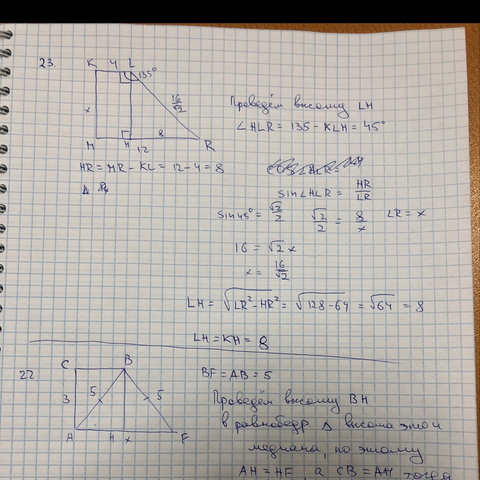 23.
K 4 L
135°
16/√2
x
8
M H 12 R
Проведём высоту LH
∠HLR = 135 - KLH = 45°
HR = MR - KL = 12 - 4 = 8
sin∠HLR = HR/LR
sin45° = √2/2 √2/2 = 8/x LR = x
16 = √2 x
x = 16/√2
LH = √LR² - HR² = √128 - 64 = √64 = 8
LH = KH = 8
22
C B
5 5
3
A H x F
BF = AB = 5
Проведём высоту BH
в равнобедр. Δ высота
медиана, по этому
AH = HF, а CB = AH тогда